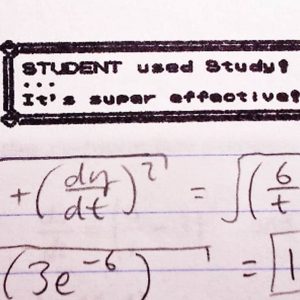 STUDENT used Study!
...
It's super effective!
+ (dy/dt)² = √(6/t
(3e⁻⁶) = 1